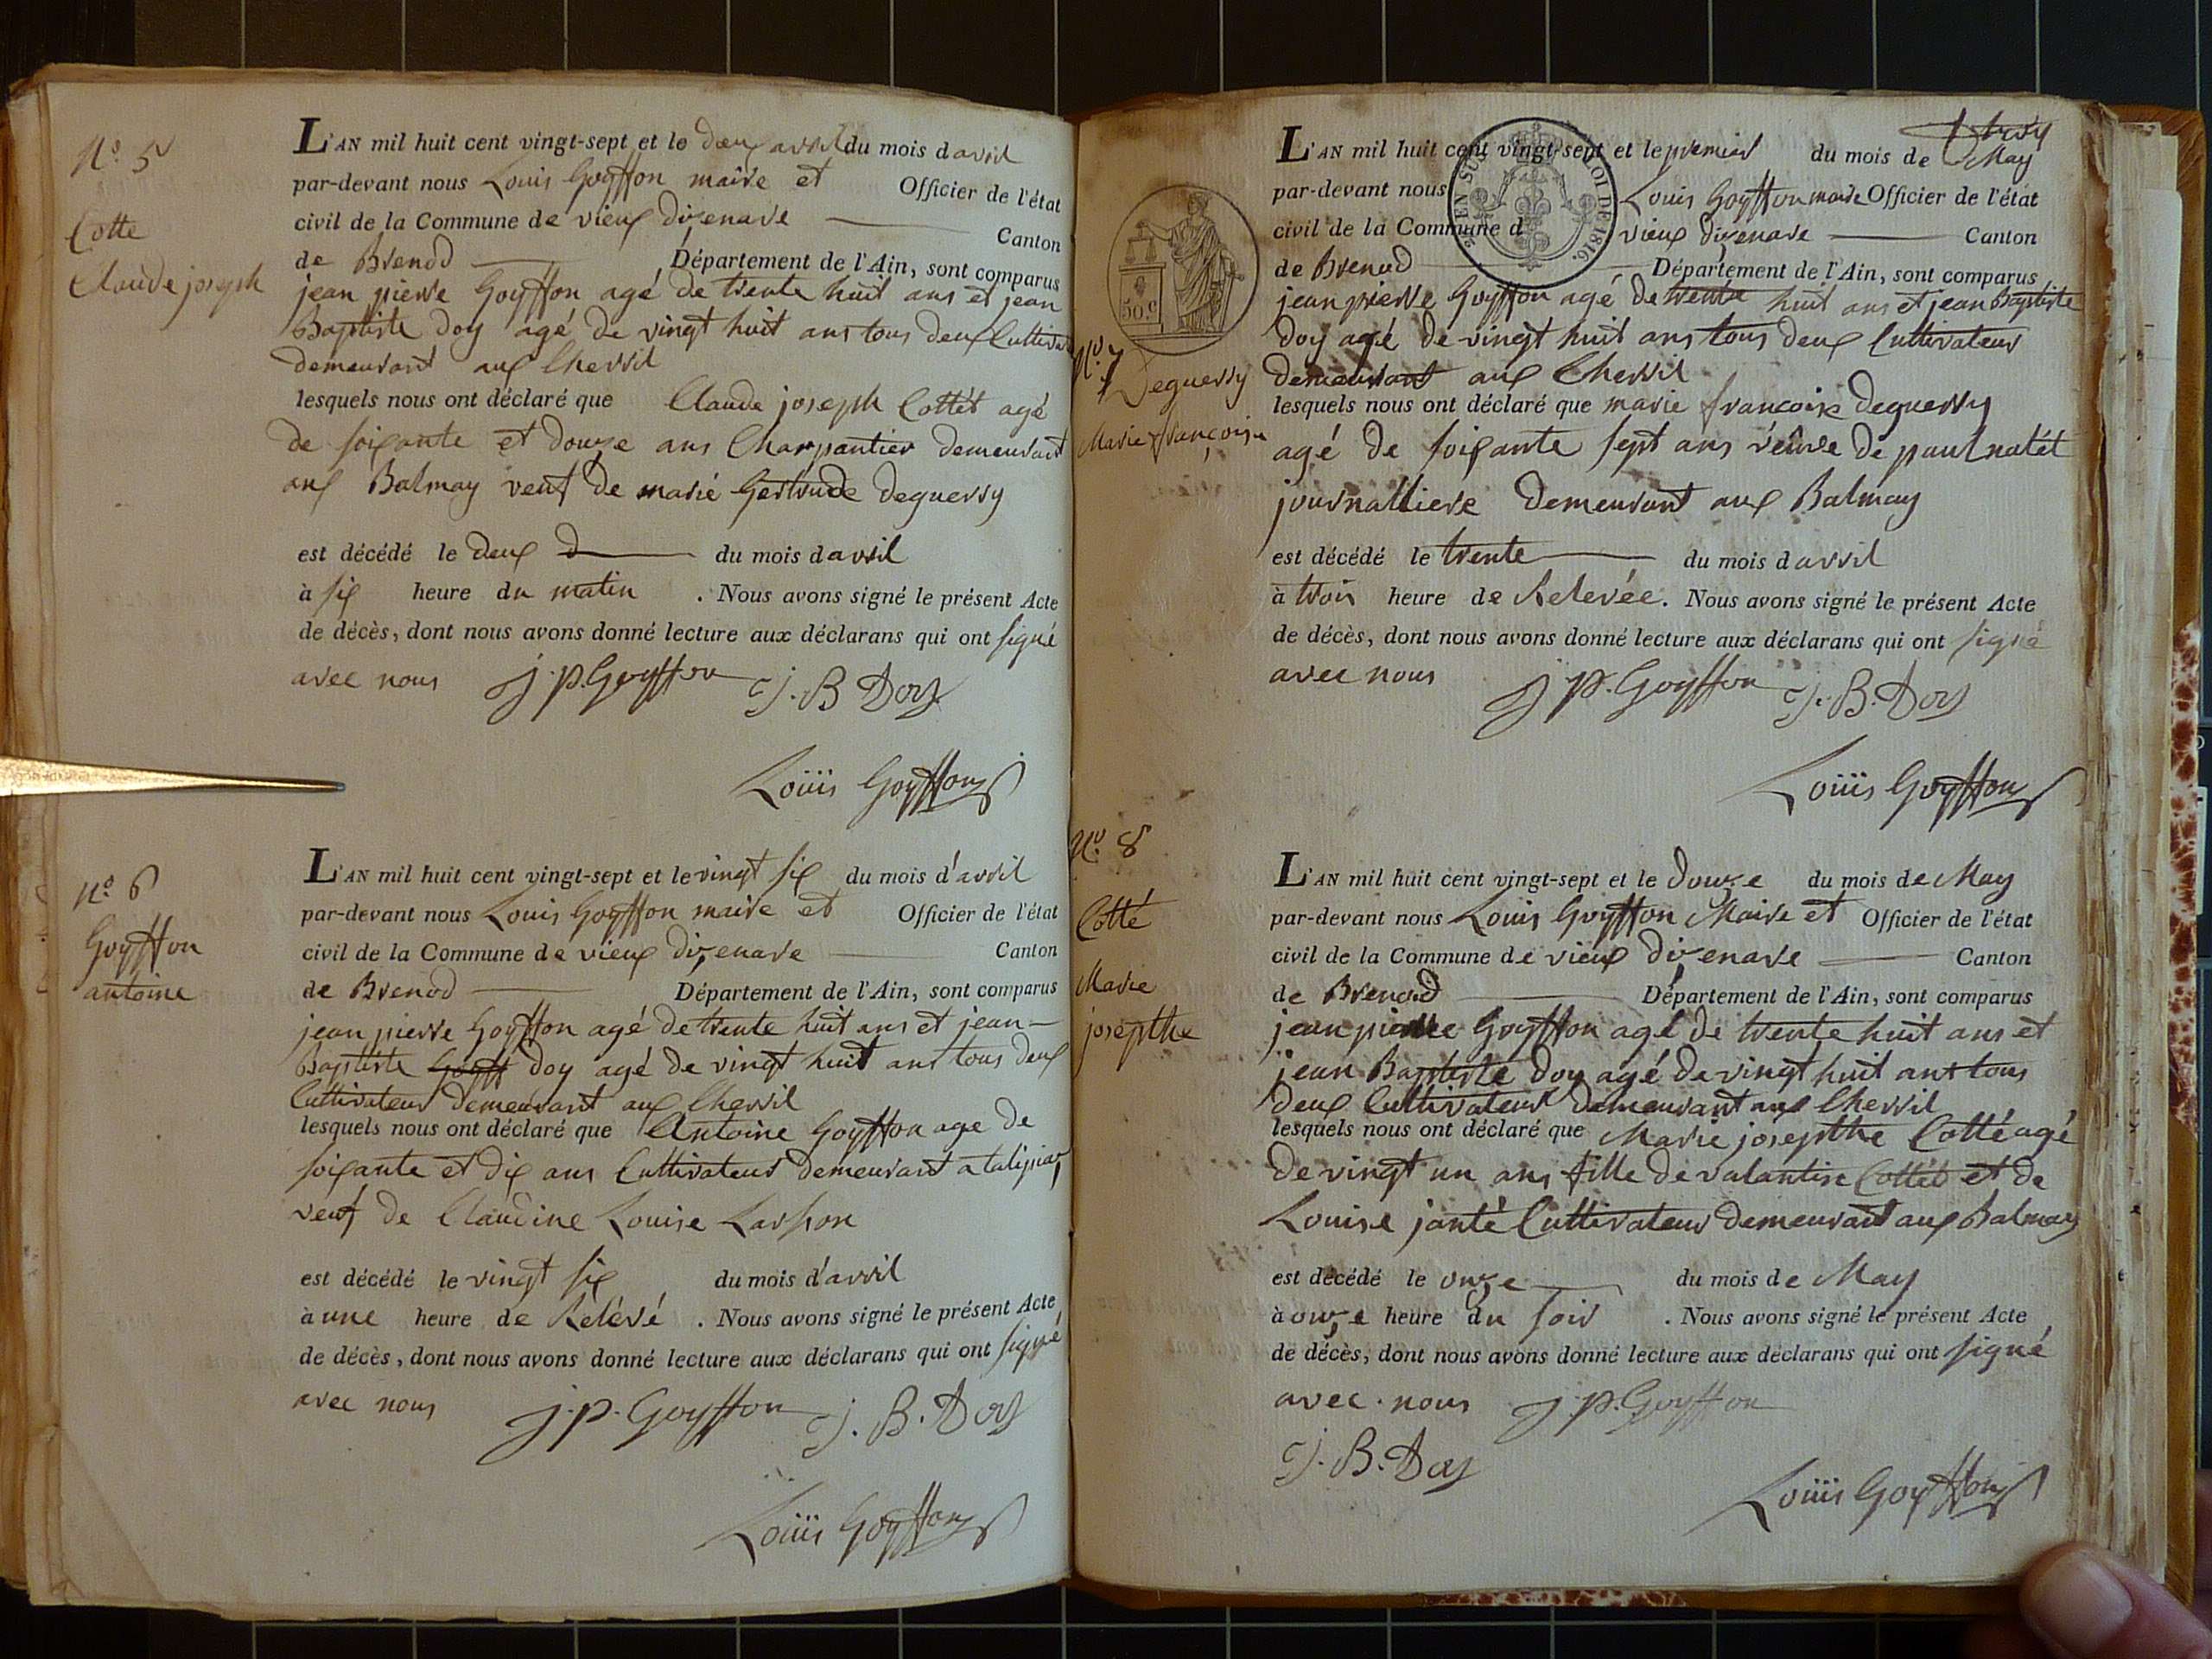 N.o 5
Cotte
Claude joseph
L'AN mil huit cent vingt-sept et le deux avril du mois d avril
par-devant nous Louis Goyffon maire et Officier de l'état
civil de la Commune de vieux dizenave Canton
de Brenod Département de l'Ain, sont comparus
jean pierre Goyffon agé de trente huit ans et jean
Baptiste doy agé de vingt huit ans tous deux Cultivat
demeurant aux Chevril
lesquels nous ont déclaré que Claude joseph Cottét agé
de soixante et douze ans Charpantier demeurant
aux Balmay veuf de marié Gertrude deguerry
est décédé le deux d du mois d avril
à six heure du matin . Nous avons signé le présent Acte
de décès, dont nous avons donné lecture aux déclarans qui ont signé
avec nous J. P. Goyffon J. B Doy
Loüis Goyffon
N.o 6
Goyffon
antoine
L'AN mil huit cent vingt-sept et le vingt six du mois d'avril
par-devant nous Louis Goyffon maire et Officier de l'état
civil de la Commune de vieux dizenave Canton
de Brenod Département de l'Ain, sont comparus
jean pierre Goyffon agé de trente huit ans et jean
Baptiste Goyff doy agé de vingt huit ans tous deux
Cultivateur demeurant aux Chevril
lesquels nous ont déclaré que Antoine Goyffon age de
soixante et dix ans Cultivateur demeurant a
veuf de Claudine Louise
est décédé le vingt six du mois d'avril
à une heure de Relevé . Nous avons signé le présent Acte
de décès, dont nous avons donné lecture aux déclarans qui ont signé
avec nous J. P. Goyffon J. B. Doy
Loüis Goyffon
L'AN mil huit cent vingt-sept et le premier du mois de May
par-devant nous Louis Goyffon maire Officier de l'état
civil de la Commune d vieux dizenave Canton
de Brenod Département de l'Ain, sont comparus
LOI DE 1816.
50.c
N.o 7
Deguerry
Marie françoise
jean pierre Goyffon agé de trente huit ans et jean Baptiste
doy agé de vingt huit ans tous deux Cultivateur
demeurant aux Chevril
lesquels nous ont déclaré que marie françoise deguerry
agé de soixante sept ans véuve de paul natét
journalliere demeurant aux Balmay
est décédé le trente du mois d avril
à trois heure de Relevée. Nous avons signé le présent Acte
de décès, dont nous avons donné lecture aux déclarans qui ont signé
avec nous J P. Goyffon J. B. Doy
Loüis Goyffon
N.o 8
Cotté
Marie
joséphe
L'AN mil huit cent vingt-sept et le douze du mois de May
par-devant nous Louis Goyffon Maire et Officier de l'état
civil de la Commune de vieux dizenave Canton
de Brenod Département de l'Ain, sont comparus
jean pierre Goyffon agé de trente huit ans et
jean Baptiste doy agé de vingt huit ans tous
deux Cultivateur demeurant aux Chevril
lesquels nous ont déclaré que Marie joséphe Cotté agé
de vingt un ans fille de valantin Cottét et de
Louise janté Cultivateur demeurant aux Balmay
est décédé le onze du mois de May
à onze heure du soir . Nous avons signé le présent Acte
de décès, dont nous avons donné lecture aux déclarans qui ont signé
avec nous J P. Goyffon
J. B. Doy
Loüis Goyffon